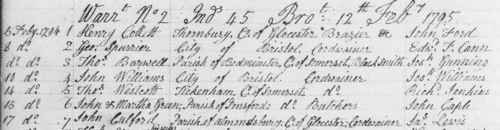 Warrt No 2 Ind 45 Brot 12th Feby 1795
5 Feby 1794 1 Henry Collett Thornbury, Co of Glocester Brazier &c John Ford
8 do 2 Geo: Spurrier City of Bristol Cordwainer Edwd T. Cann
do do 3 Thos Barwell Parish of Bedminster, Co of Somerset, Black Smith Jos: Gunning
10 do 4 John Williams City of Bristol Cordwainer Jos: Williams
14 do 5 Thos Westcott Tickenham, Co of Somerset do Richd Jenkins
16 do 6 John & Martha Green, Parish of Publow do Butchers John Cagle
17 do 7 John Culford, Parish of Almondsbury, Co of Glocester; Cordwainer Jas: Lewis